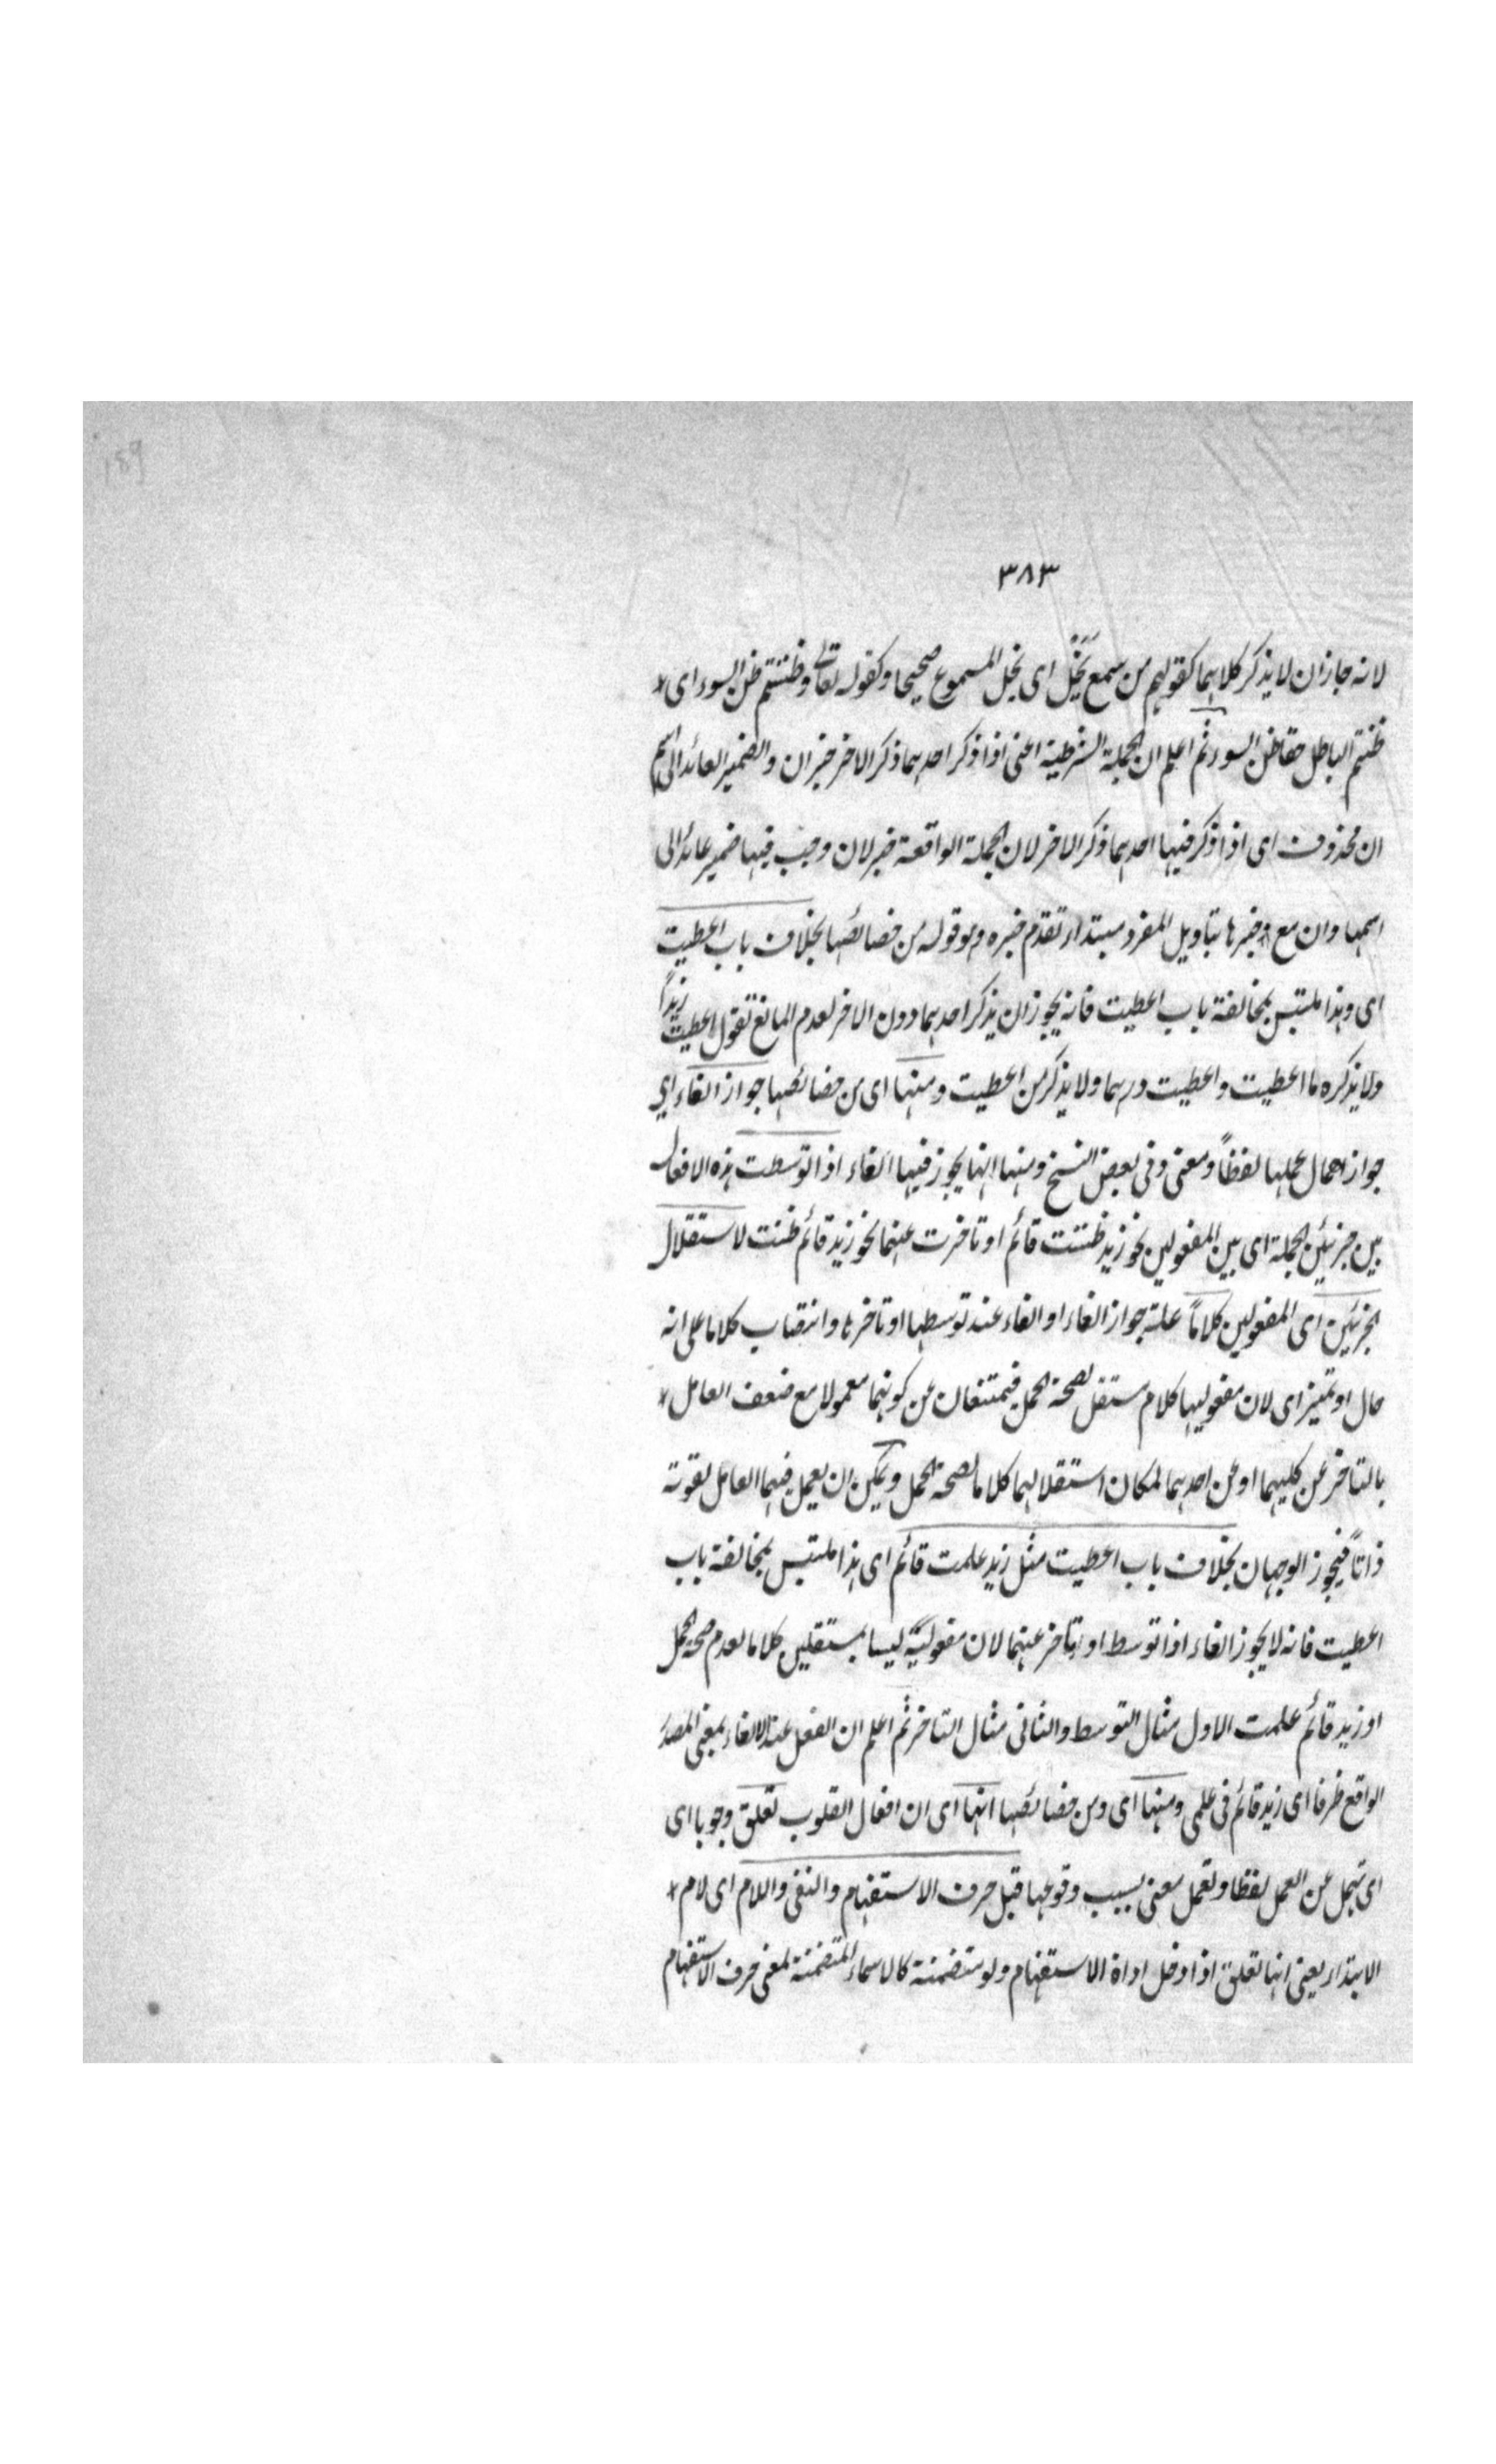 189
٣٨٣
لانه جاز ان لا يذكر كلاهما كقولهم من سمع يَخَلْ اى يخل المسموع صحيحا وكقوله تعالى وظننتم ظن السوء اى
ظننتم الباطل حقا ظن السوء ثم اعلم ان الجملة الشرطية اعنى اذا ذكر احدهما ذكر الاخر خبر ان والضمير العائد الى اسم
ان محذوف اى اذا ذكر فيها احدهما ذكر الاخر لان الجملة الواقعة خبر لان وجب فيها ضمير عائد الى
اسمها وان مع وخبرها بتاويل المفرد مبتداء تقدم خبره وهو قوله من خصائصها بخلاف باب اعطيت
اى وهذا ملتبس بمخالفة باب اعطيت فانه يجوز ان يذكر احدهما دون الاخر لعدم المانع تقول اعطيت زيداً
ولا يذكره ما اعطيت واعطيت درهما ولا يذكر من اعطيت ومنها اى من خصائصها جواز الغاء اى
جواز اهمال عملها لفظاً ومعنى وفى بعض النسخ ومنها انها يجوز فيها الغاء اذا توسطت هذه الافعال
بين جزئين الجملة اى بين المفعولين نحو زيد ظننت قائم او تاخرت عنهما نحو زيد قائم ظننت لاستقلال
الجزئين اى المفعولين كلاماً علة جواز الغاء او الغاء عند توسطها او تاخرها وانتصاب كلاما على انه
حال او تميز اى لان مفعوليها كلام مستقل لصحة الحمل فيمتنعان عن كونهما معمولا مع ضعف العامل
بالتاخر عن كليهما او عن احدهما لمكان استقلالهما كلاما لصحة الحمل ويمكن ان يعمل فيهما العامل لقوته
ذاتاً فيجوز الوجهان بخلاف باب اعطيت مثل زيد علمت قائم اى هذا ملتبس بمخالفة باب
اعطيت فانه لا يجوز الغاء اذا توسط او تاخر عنهما لان مفعوليه ليسا بمستقلين كلاما لعدم صحة الحمل
او زيد قائم علمت الاول مثال التوسط والثانى مثال التاخر ثم اعلم ان الفعل عند الالغاء بمعنى المصدر
الواقع ظرفا اى زيد قائم فى علمى ومنها اى ومن خصائصها انها اى ان افعال القلوب تعلق وجوبا اى
اى تهمل عن العمل لفظا وتعمل معنى بسبب وقوعها قبل حرف الاستفهام والنفى واللام اى لام
الابتداء يعنى انها تعلق اذا دخل اداة الاستفهام ولو متضمنة كالاسماء المتضمنة لمعنى حرف الاستفهام